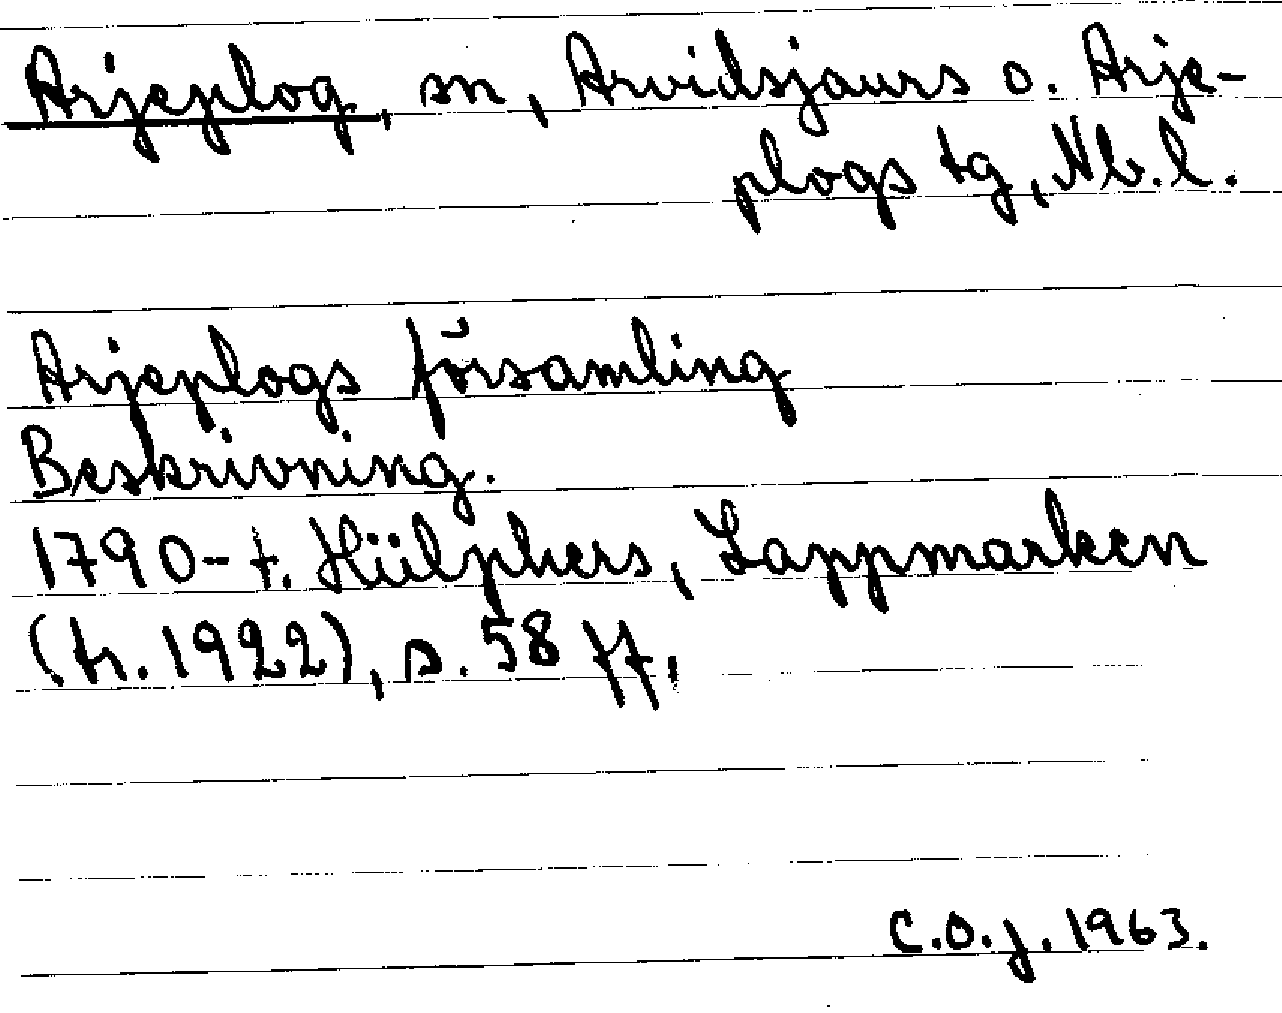 Arjeplog, sn, Arvidsjaurs o. Arje-
plogs tg, Nb.l.
Arjeplogs församling
Beskrivning.
1790-t. Hülphers, Lappmarken
(tr. 1922), s. 58 ff.
C.O.J. 1963.